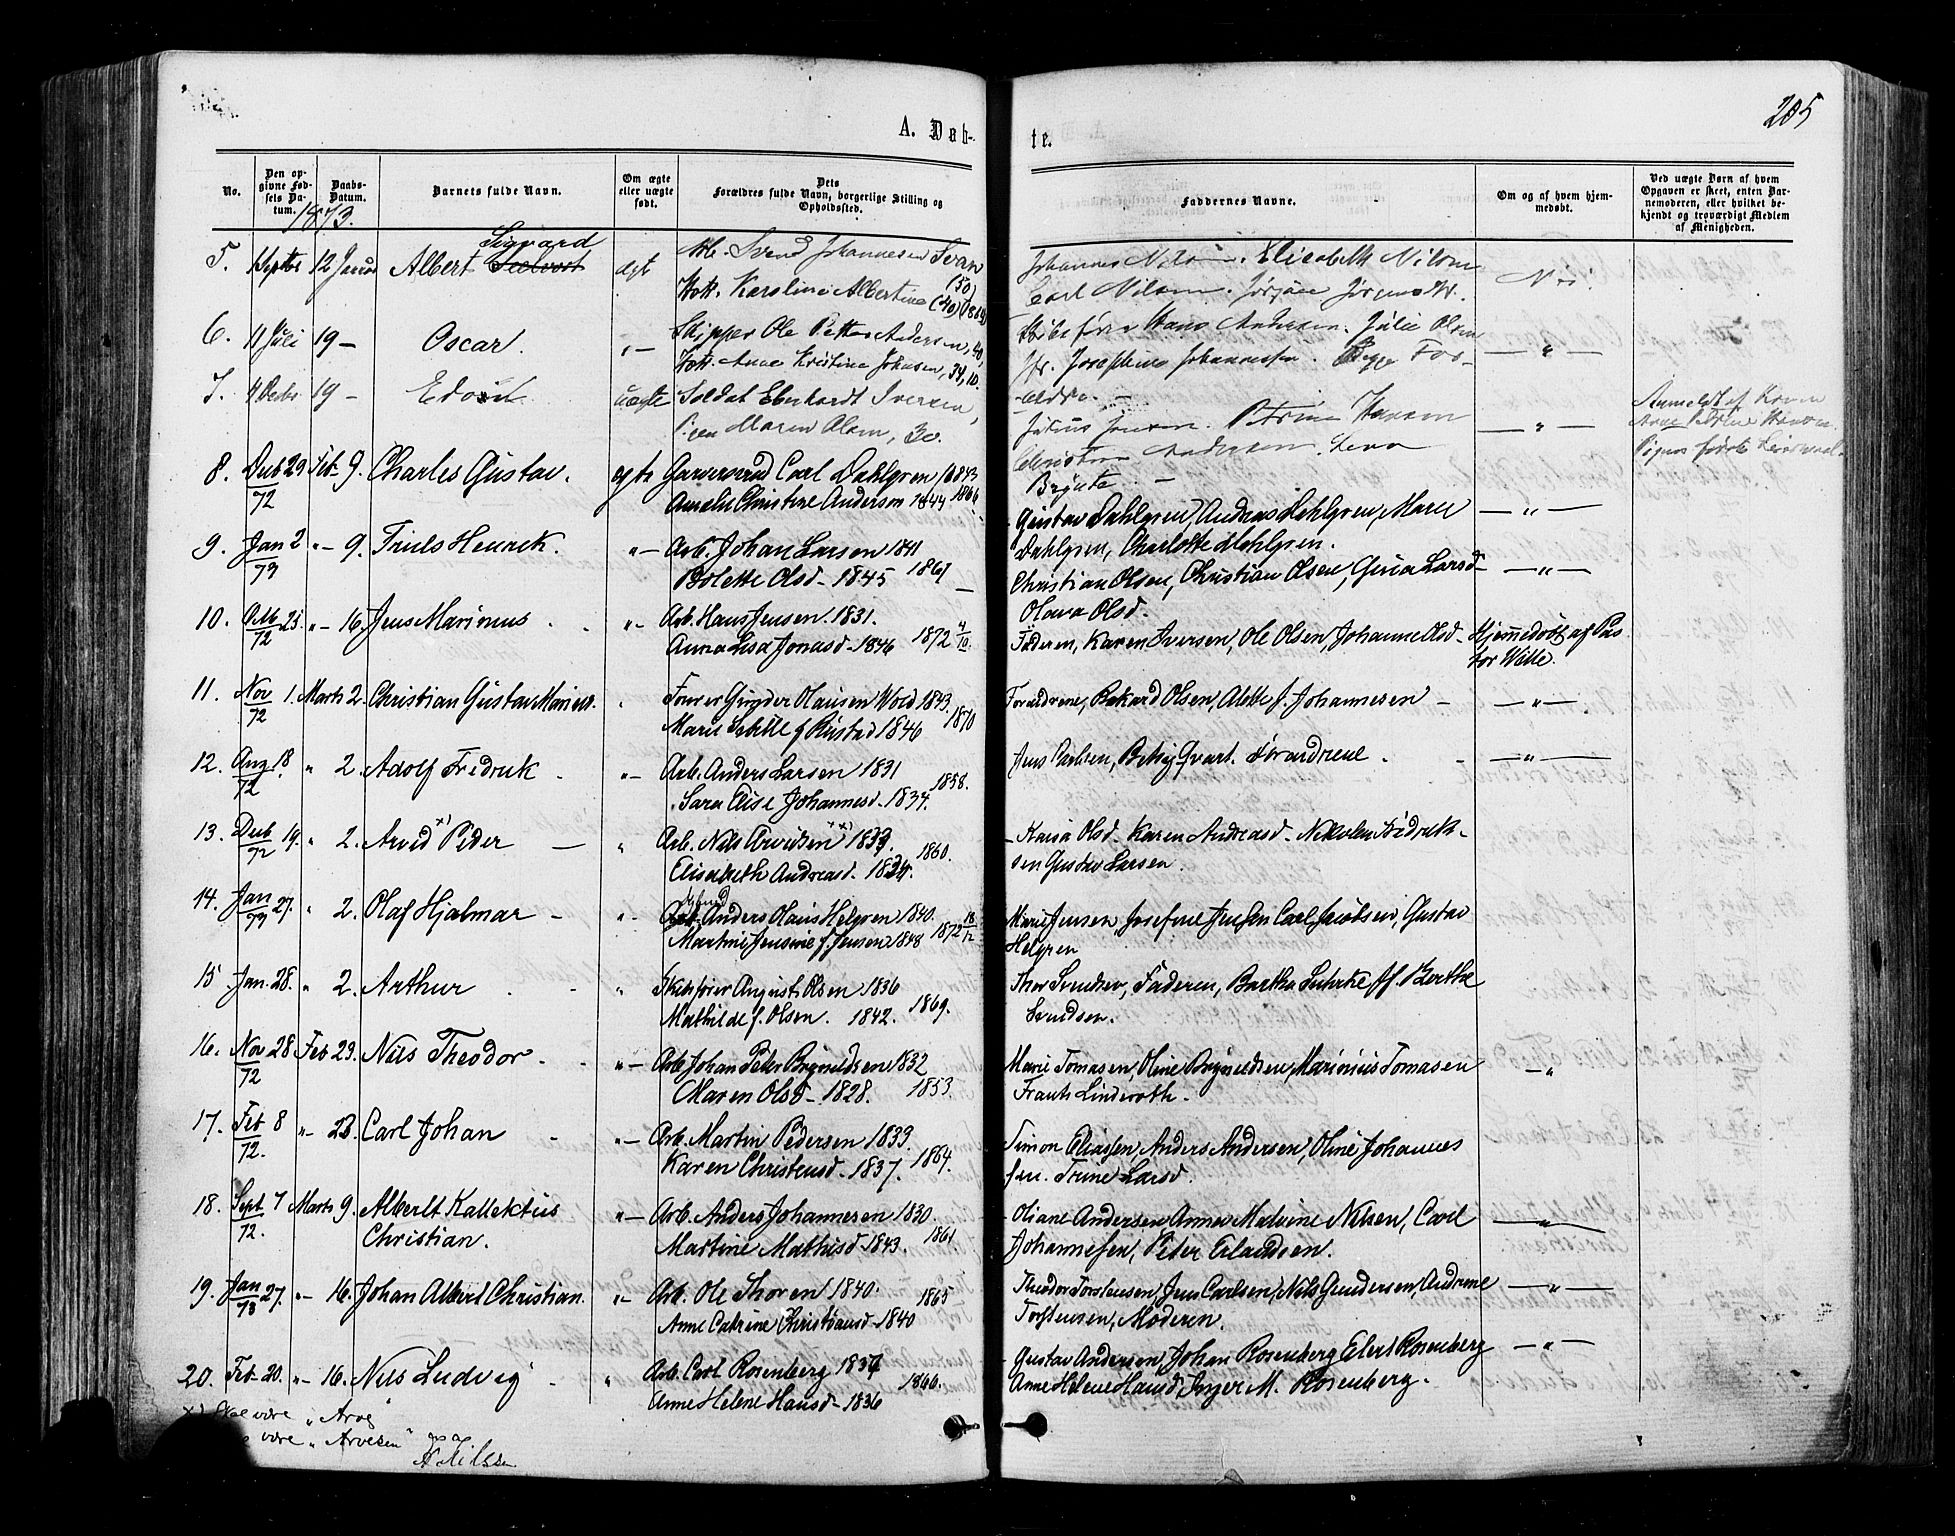 205
A. Døb-
te.
No.
Den op-
givne Fød-
sels Da-
tum.
Daabs-
Datum.
Barnets fulde Navn.
Om ægte
eller uægte
født.
Dets
Forældres fulde Navn, borgerlige Stilling og
Opholdssted.
Faddernes Navne.
Om og af hvem hjem-
medøbt.
Ved uægte Børn af hvem
Opgaven er skeet, enten Bar-
nemoderen, eller hvilket be-
kjendt og troværdigt Medlem
af Menigheden.
1873.
Sigvard
5. 12 Januar Albert ægt Arb. Svend Johannesen Svan
(50)
Karoline Albertine (40)
Johannes Nilsen. Elisabeth Nilsen
Carl Nilsen. Nei.
6. 11 Juli 19 — Oscar. "— Skipper Ole Petter Andersen, 40,
Anne Kristine Johnsen, 34, 10.
Hans Andersen. Julie Olsen
Josephine Johannesen. Begge For-
ældre. — " —
7. 4 Decbr 19 — uægte Soldat Eberhardt Iversen,
Pigen Maren Olsen, 30.
Julius Jensen. Petrine Hansen
Christian Andersen. Lena
Brynte. — — " —
Anmeldt af Konen
Anne Petrine Hansen.
8. Decb 29 Feb. 9. Charles Gustav. ægte Garversvend Carl Dahlgren 1843
72 Amelie Christine Anderson 1844 1866
Gustav Dahlgren, Andreas Mehlgren, Marie — " —
Dahlgren, Charlotte Mehlgren.
9. Jan 2 "— 9. Truls Henrek. "— Arb. Johan Larsen 1841
73 Bolette Olsd — 1845 1867 —
Christian Olsen, Christian Olsen, Gina Larsd — " —
Olava Olsd.
10. "— 16. Jens Marinius. "— Arb. Hans Jensen. 1831.
72 Anna Lisa Jonasd — 1846 1872 4/10
Faderen, Karen Iversen, Ole Olsen, Johanne Olsd — Hjemmedøbt af Pas-
tor Wille.
11. Nov 1. Marts 2. Christian Gustav Marius. Hansen Wold 1843.
72 Marie f Rustad 1846 1870
Forældrene, Rikard Olsen, Alette f. Johannesen — — " —
12. Aug 18. " 2. Adolf Fredrik "— Arb. Anders Larsen 1831
72 Sara Elise Johannesd — 1834. 1858.
Jens Paulsen, Betsy Qvart. Forældrene. — — " —
13. Decb 19. " 2. Arvid x) Peder — " Arb. Nils Arvidsen xx) 1833.
72 Elisabeth Andreasd. 1834. 1860.
Kaisa Olsd. Karen Andreasd — Nikolai Fredrik-
sen Gustav Larsen.
14. Jan 27. " 2. Olaf Hjalmar — "— Anders Hans Helgren 1840.
73 Martine Jensine f. Jensen 1848 1872 18/12
Marie Jensen, Josefine Jensen Carl Jacobsen, Gustav
Helgren
15 Jan. 28. " 2. Arthur " Skibsfører August Olsen 1836
Mathilde f. Olsen. 1842. 1869.
Thor Svendsen, Faderen, Bertha Jf. Berthe
Svendsen.
16. Nov 28 Feb 23. Nils Theodor. "— Arb. Johan Peter Brynildsen 1832
72 Maren Olsd — 1828. 1853
Marie Tomasen, Oline Brynildsen, Marinius Tomasen — "
Frants Linderoth.
17. Feb 8 "— 23. Carl Johan "— Arb. Martin Pedersen 1833.
72. Karen Christensd — 1837. 1864.
Simon Eliassen, Anders Andersen, Oline Johannes
sen. Trine Larsd.
18. Sept. 7 Marts 9. Alberlt Kallektius "— Arb. Anders Johannesen 1830.
72. Christian. Martine Mathisd — 1843. 1861.
Oliane Andersen, Anne Malvine Nilsen, Carl — " —
Johannesen, Peter Erlandsen.
19. Jan 27. "— 16. Johan Albert Christian. "— Arb. Ole Thoren 1840. 1865
73 Anne Catrine Christiansd — 1840
Theodor Torstensen, Jens Carlsen, Nils Gundersen, Andrine — " —
Torstensen, Moderen.
20. Feb 20. "— 16. Nils Ludvig " Arb. Carl Rosenberg 1837
Anne Helene Hansd — 1836 1866.
Gustav Andersen, Johan Rosenberg, Elert Rosenberg — " —
Anne Helene Hansd, Inger M. Rosenberg.
x) Skal være "Arve
være "Arvesen"
Nilssen